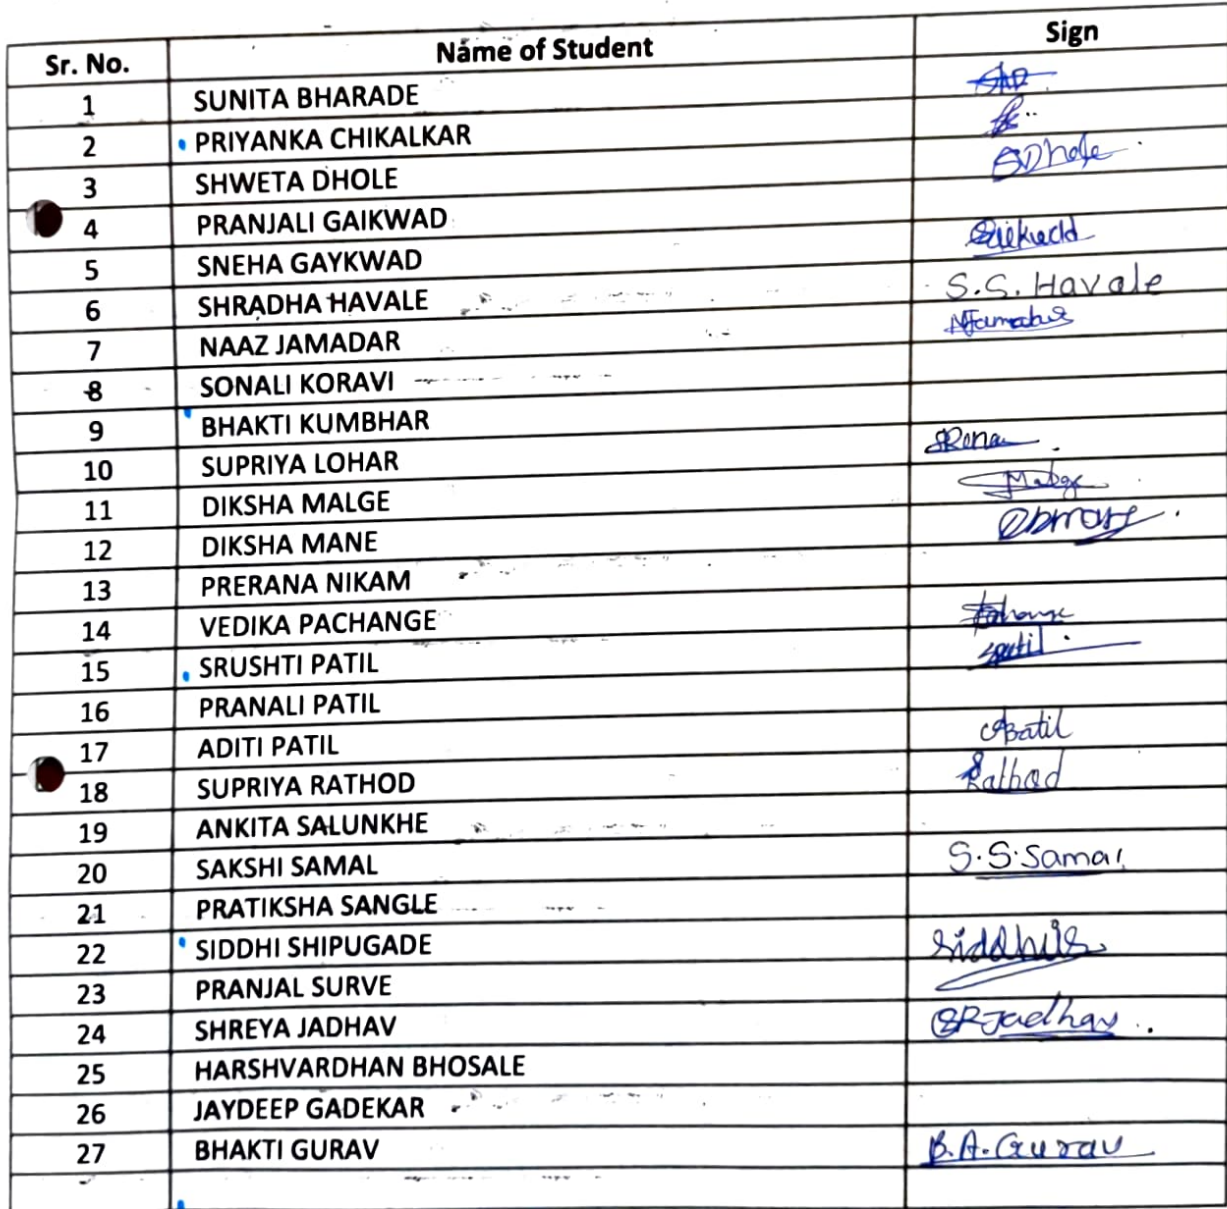 Sr. No. Name of Student Sign
1 SUNITA BHARADE
2 PRIYANKA CHIKALKAR
3 SHWETA DHOLE SDhole
4 PRANJALI GAIKWAD
5 SNEHA GAYKWAD
6 SHRADHA HAVALE S.S. Havale
7 NAAZ JAMADAR
8 SONALI KORAVI
9 BHAKTI KUMBHAR
10 SUPRIYA LOHAR
11 DIKSHA MALGE Malge
12 DIKSHA MANE
13 PRERANA NIKAM
14 VEDIKA PACHANGE
15 SRUSHTI PATIL
16 PRANALI PATIL
17 ADITI PATIL
18 SUPRIYA RATHOD Rathod
19 ANKITA SALUNKHE
20 SAKSHI SAMAL S.S.Samal
21 PRATIKSHA SANGLE
22 SIDDHI SHIPUGADE
23 PRANJAL SURVE
24 SHREYA JADHAV SRJadhav
25 HARSHVARDHAN BHOSALE
26 JAYDEEP GADEKAR
27 BHAKTI GURAV B.A.Gurav